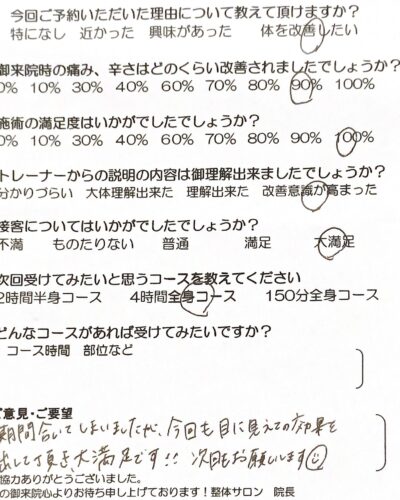 今回ご予約いただいた理由について教えて頂けますか?
特になし 近かった 興味があった 体を改善したい
御来院時の痛み、辛さはどのくらい改善されましたでしょうか?
0% 10% 30% 40% 60% 70% 80% 90% 100%
施術の満足度はいかがでしたでしょうか?
0% 10% 30% 40% 60% 70% 80% 90% 100%
トレーナーからの説明の内容は御理解出来ましたでしょうか?
分かりづらい 大体理解出来た 理解出来た 改善意識が高まった
接客についてはいかがでしたでしょうか?
不満 ものたりない 普通 満足 大満足
次回受けてみたいと思うコースを教えてください
2時間半身コース 4時間全身コース 150分全身コース
どんなコースがあれば受けてみたいですか?
コース時間 部位など
ご意見・ご要望
期間合いてしまいましたが、今回も目に見えての効果を
出して頂き、大満足です!! 次回もお願いします
協力ありがとうございました。
の御来院心よりお待ち申し上げております!整体サロン 院長